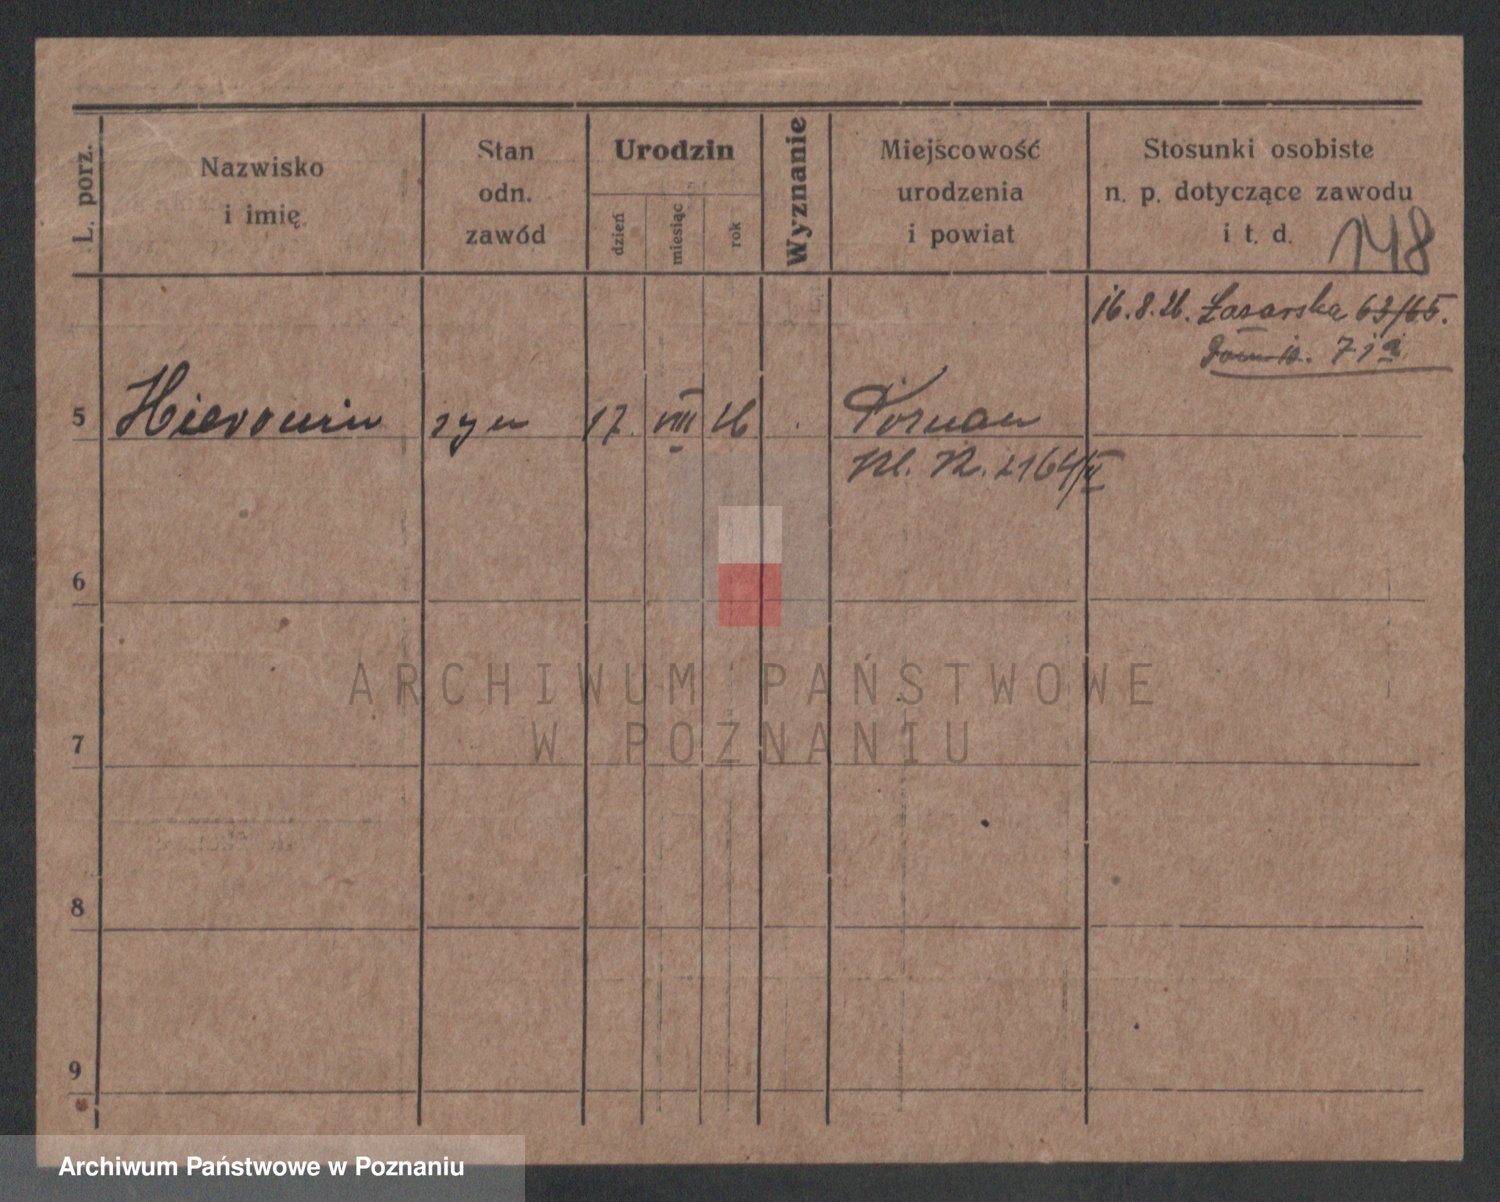 L. porz.
Nazwisko
i imię
Stan
odn.
zawód
Urodzin
dzień
miesiąc
rok
Wyznanie
Miejscowość
urodzenia
i powiat
Stosunki osobiste
n. p. dotyczące zawodu
i t. d.
148
16.8.26. Łazarska 63/65.
71a
5 Hieronim syn 17. VIII 26 Poznan
6
ARCHIWUM PAŃSTWOWE
W POZNANIU
7
8
9
Archiwum Państwowe w Poznaniu